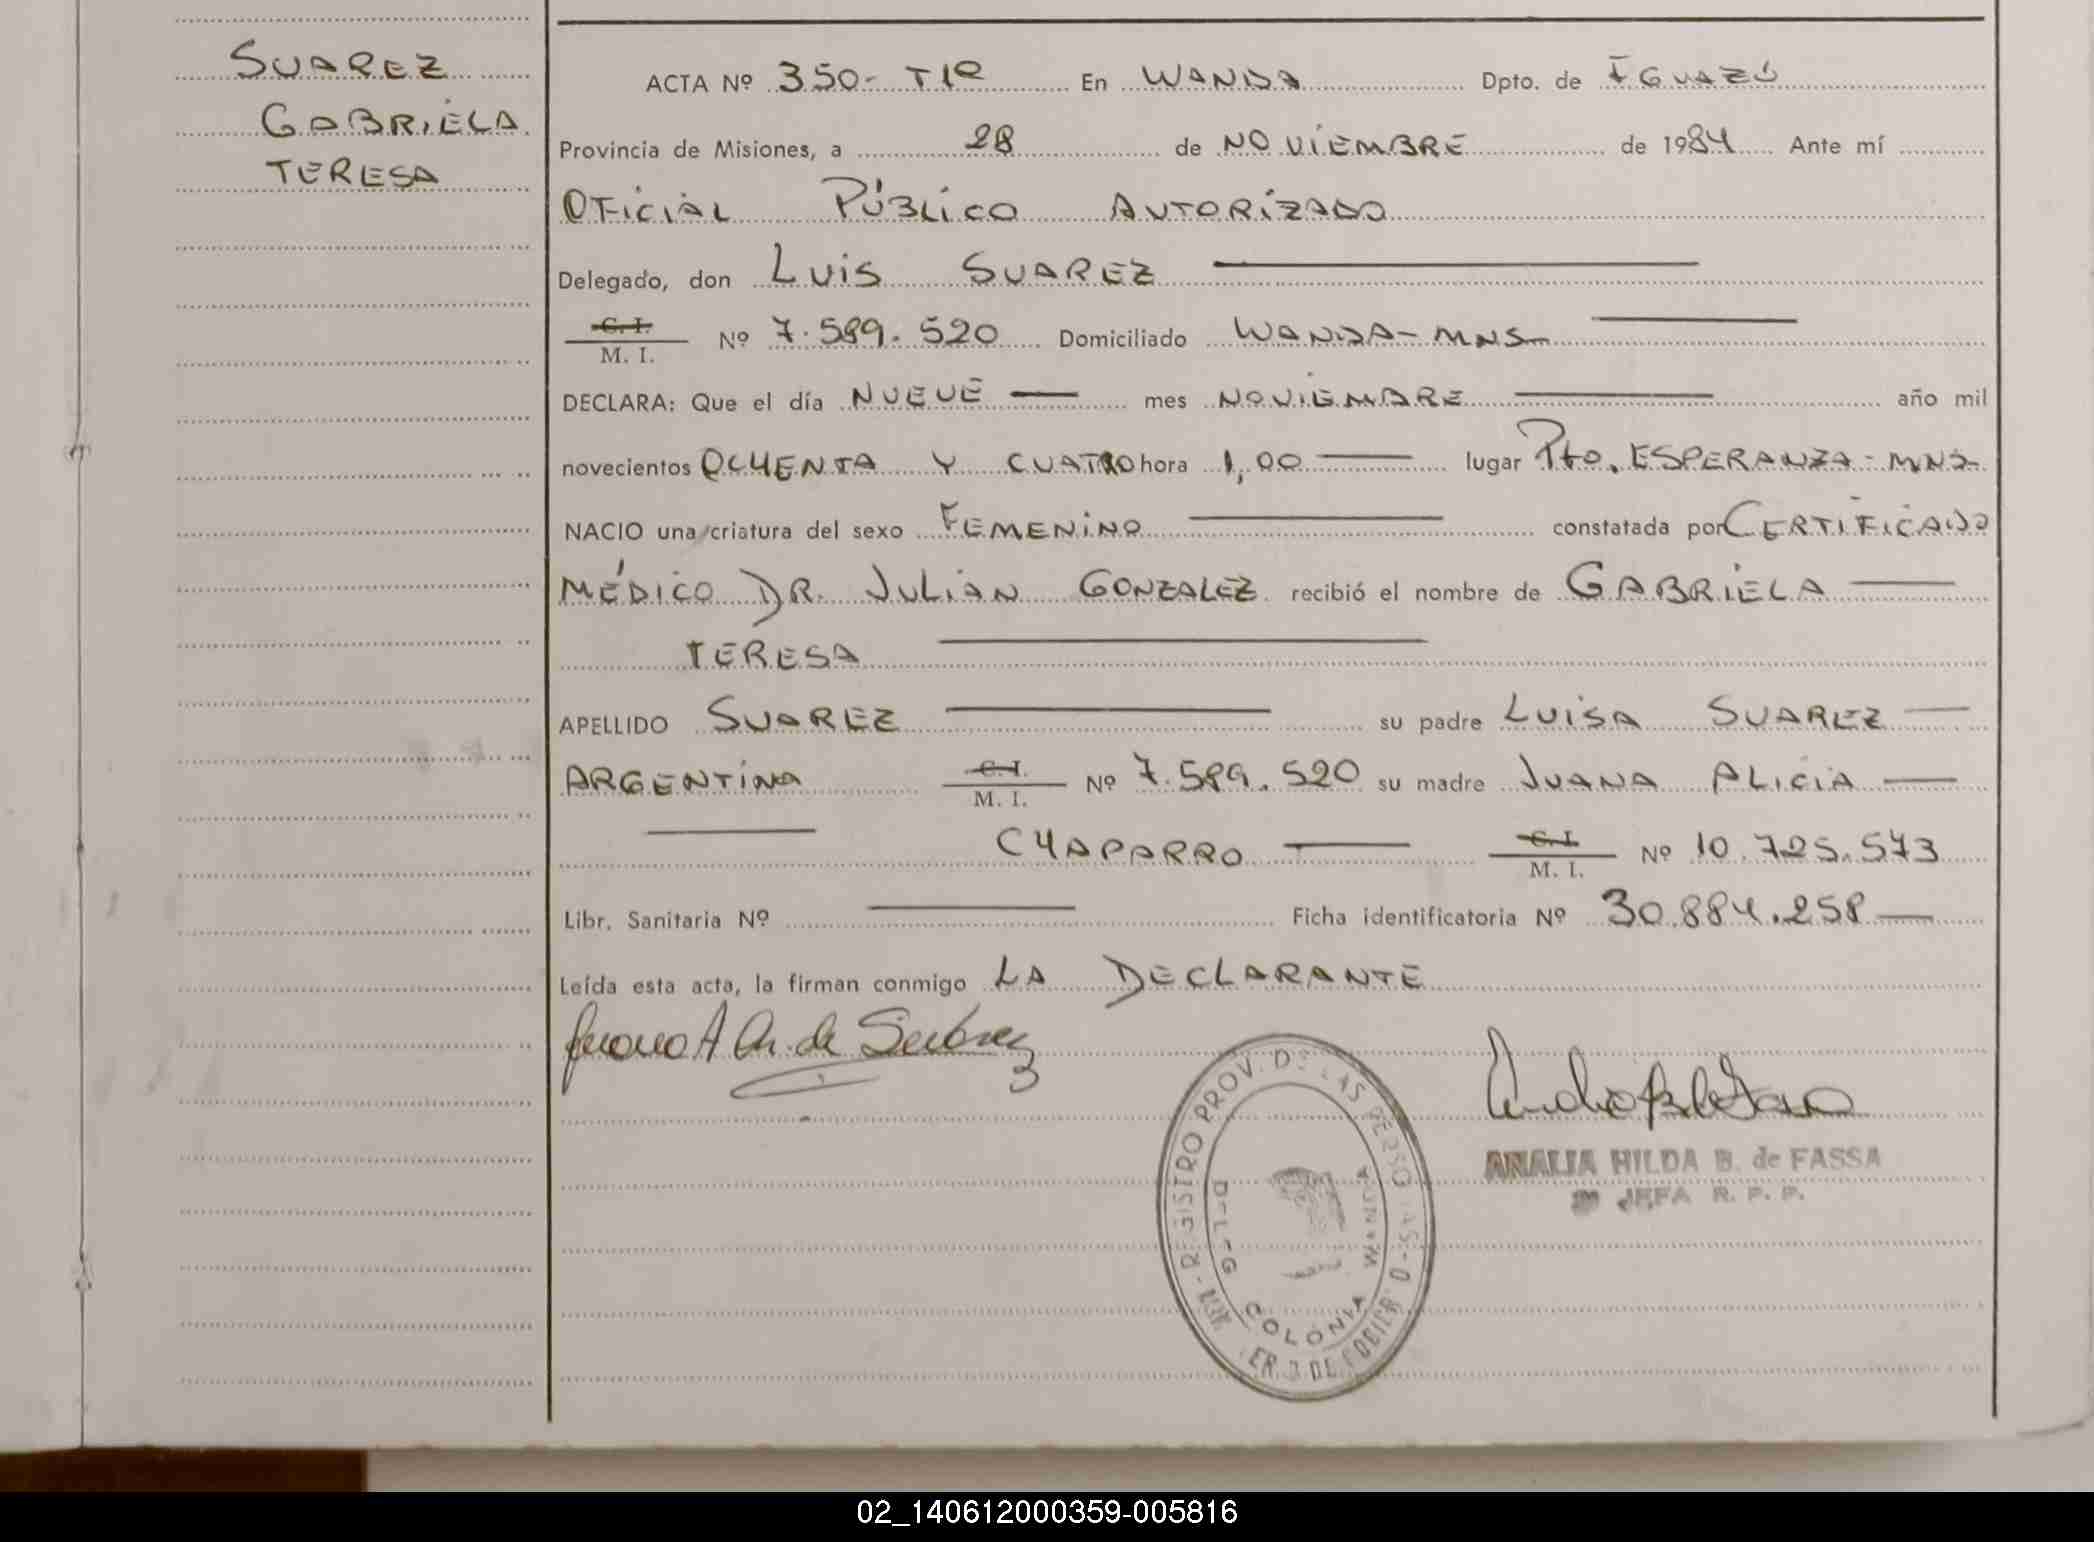 SUAREZ
GABRIELA
TERESA
ACTA Nº 350- T1º En WANDA Dpto. de IGUAZÚ
Provincia de Misiones, a 28 de NOVIEMBRE de 1984 Ante mí
OFICIAL PÚBLICO AUTORIZADO
Delegado, don LUIS SUAREZ
C. I.
M. I. Nº 7.589.520 Domiciliado WANDA-MNS-
DECLARA: Que el día NUEVE mes NOVIEMBRE año mil
novecientos OCHENTA Y CUATRO hora 1,00 lugar Pto. ESPERANZA-MNS-
NACIO una criatura del sexo FEMENINO constatada por CERTIFICADO
MÉDICO DR. JULIAN GONZALEZ recibió el nombre de GABRIELA
TERESA
APELLIDO SUAREZ su padre LUISA SUAREZ
ARGENTINA C. I. M. I. Nº 7.589.520 su madre JUANA ALICIA
CHAPARRO C. I. M. I. Nº 10.725.573
Libr. Sanitaria Nº Ficha identificatoria Nº 30.884.258
Leída esta acta, la firman conmigo LA DECLARANTE
Juana A Ch. de Suarez
REGISTRO PROV. DE LAS PERSONAS
DELEG
COLONIA WANDA
ANALIA HILDA B. de FASSA
JEFA R. P. P.
02_140612000359-005816